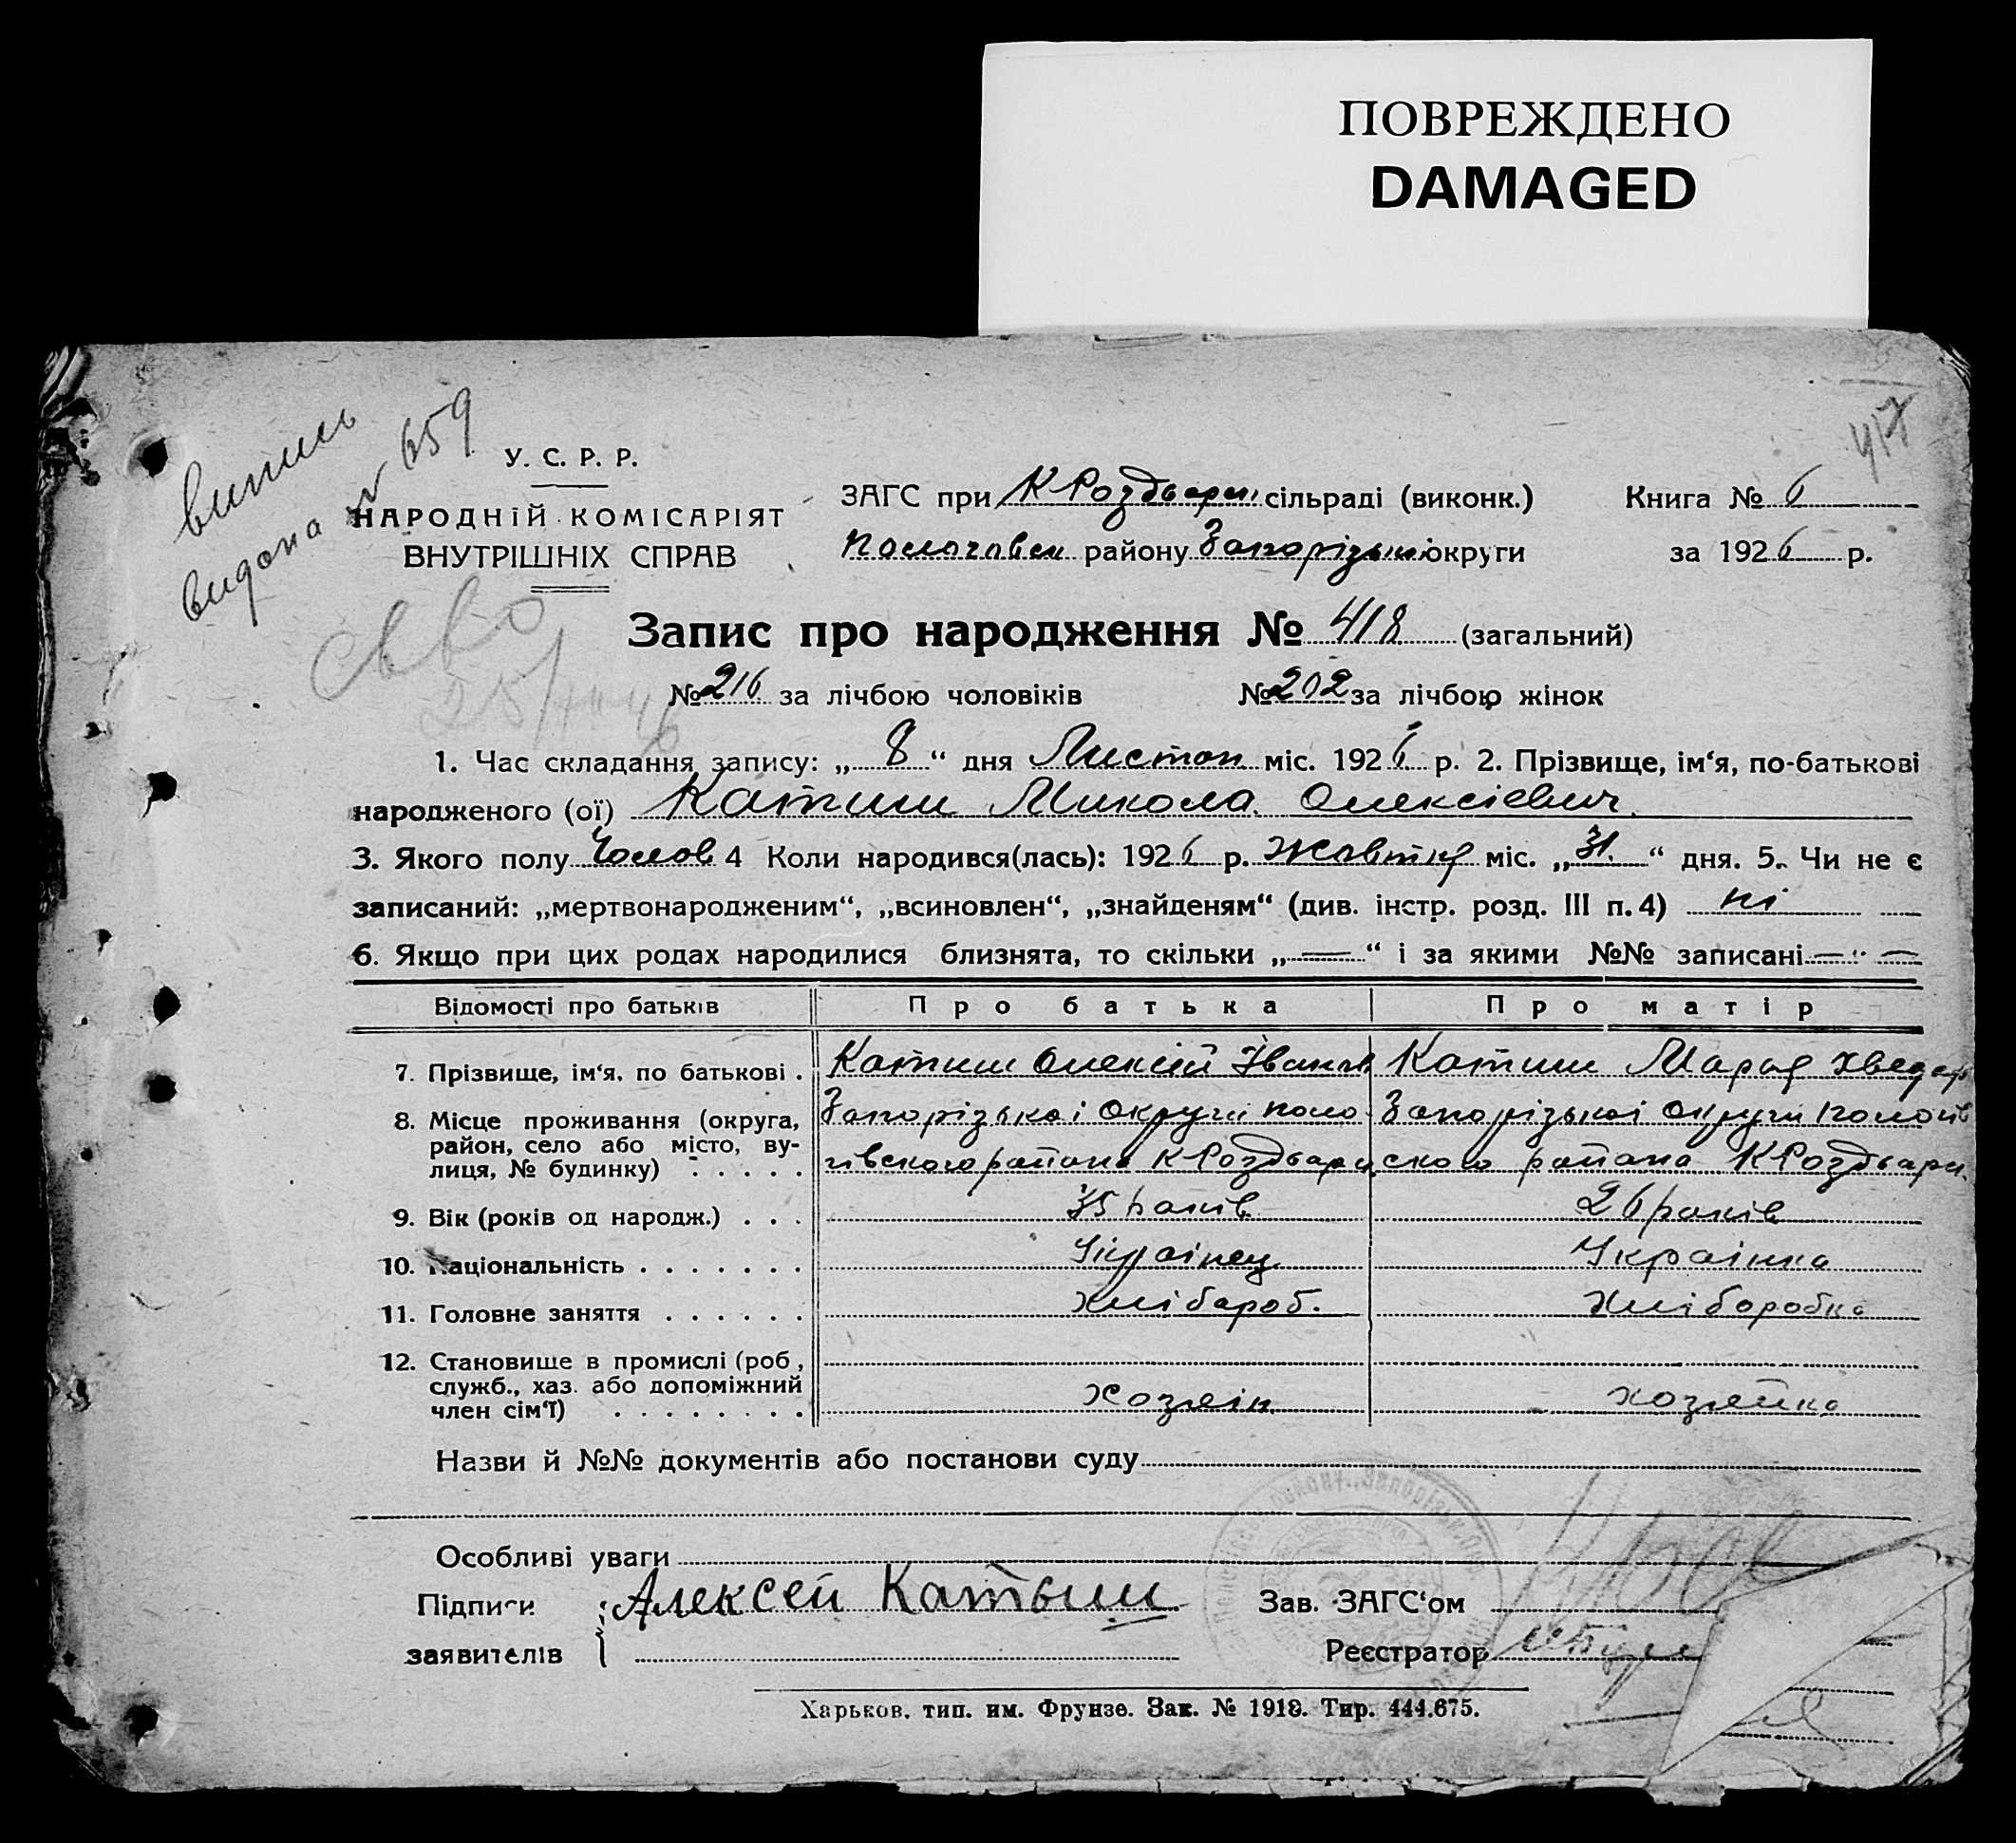 ПОВРЕЖДЕНО
DAMAGED
417
випись
видана № 659
У. С. Р. Р.
НАРОДНІЙ КОМІСАРІЯТ
ВНУТРІШНІХ СПРАВ
ЗАГС при К Роздорн. сільраді (виконк.)
Книга № 6
району Запорізької округи
за 1926 р.
Запис про народження № 418 (загальний)
№ 216 за лічбою чоловіків № 202 за лічбою жінок
1. Час складання запису: „ 8 “ дня Листоп міс. 1926 р. 2. Прізвище, ім‘я, по-батькові
народженого (ої) Катиш Микола Олексієвич
3. Якого полу Чолов 4 Коли народився(лась): 1926 р. Жовтня міс. „ 31. “ дня. 5. Чи не є
записаний: „мертвонародженим“, „всиновлен“, „знайденям“ (див. інстр. розд. III п. 4) ні
6. Якщо при цих родах народилися близнята, то скільки „ — “ і за якими №№ записані — " —
Відомості про батьків Про батька Про матір
7. Прізвище, ім‘я, по батькові . Катиш Олексій Іванов Катиш Марья Хведор
8. Місце проживання (округа,
район, село або місто, ву-
лиця, № будинку) . . . . .
Запорізькоі Округи поло
гівского района К Роздори
Запорізькоі Округи пологів
ского района К Роздори.
9. Вік (років од народж.) . . . 35 років 26 років
10. Національність . . . . . . . Українец Українка
11. Головне заняття . . . . . . Хлібороб. Хліборобка
12. Становише в промислі (роб,
служб., хаз. або допоміжний
член сім‘ї) . . . . . . . .
Хозяін хозяйка
Назви й №№ документів або постанови суду
Особливі уваги
Підписи Алексей Катыш Зав. ЗАГС‘ом
заявителів Реєстратор
Харьков, тип. им. Фрунзе. Зак. № 1918. Тир. 444.675.